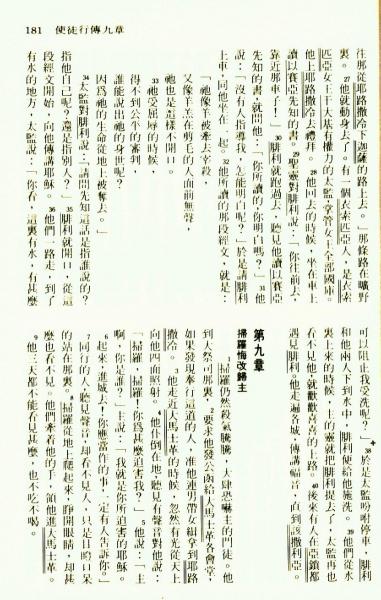 181 使徒行傳九章
往那從耶路撒冷下迦薩的路上去。」那條路在曠野
裏。27他就動身去了。有一個衣索匹亞人，是衣索
匹亞女王干大基有權力的太監，掌管女王全部國庫。
他上耶路撒冷去禮拜。28他回去的時候，坐在車上
讀以賽亞先知的書。29聖靈對腓利說：「你往前去，
靠近那車子！」30腓利就跑過去，聽見他讀以賽亞
先知的書，就問他：「你所讀的，你明白嗎？」31他
說：「沒有人指導我，怎能明白呢？」於是請腓利
上車，同他坐在一起。32他所讀的那段經文，就是：
「祂像羊被牽去宰殺，
又像羊羔在剪毛的人面前無聲，
祂也是這樣不開口。
33祂受屈辱的時候，
得不到公平的審判，
誰能說出祂的身世呢？
因為祂的生命從地上被奪去。」
34太監對腓利說：「請問先知這話是指誰說的？
指他自己呢？還是指別人？」35腓利就開口，從這
段經文開始，向他傳講耶穌。36他們一路走，到了
有水的地方，太監說：「你看，這裏有水，有甚麼
可以阻止我受洗呢？」38於是太監吩咐停車，腓利
和他兩人下到水中，腓利便給他施洗。39他們從水
裏上來的時候，主的靈就把腓利提去了，太監再也
看不見他，就歡歡喜喜的上路。40後來有人在亞鎖都
遇見腓利；他走遍各城，傳講福音，直到該撒利亞。
第九章
掃羅悔改歸主
1掃羅仍然殺氣騰騰，大肆恐嚇主的門徒。他
到大祭司那裏，2要求他發公函給大馬士革各會堂，
如果發現奉行這道的人，准他連男帶女綑拿到耶路
撒冷。3他走近大馬士革的時候，忽然有光從天上
向他四面照射。4他仆倒在地，聽見有聲音對他說：
「掃羅，掃羅！你爲甚麼迫害我？」5他說：「主
啊，你是誰？」主說：「我就是你所迫害的耶穌。
6起來，進城去！你應當作的事，一定有人告訴你。」
7同行的人，聽見聲音，卻看不見人，只是目瞪口呆
的站在那裏。8掃羅從地上爬起來，睜開眼睛，却甚
麼也看不見。他們牽着他的手，領他進大馬士革。
9他三天都不能看見甚麼，也不吃不喝。